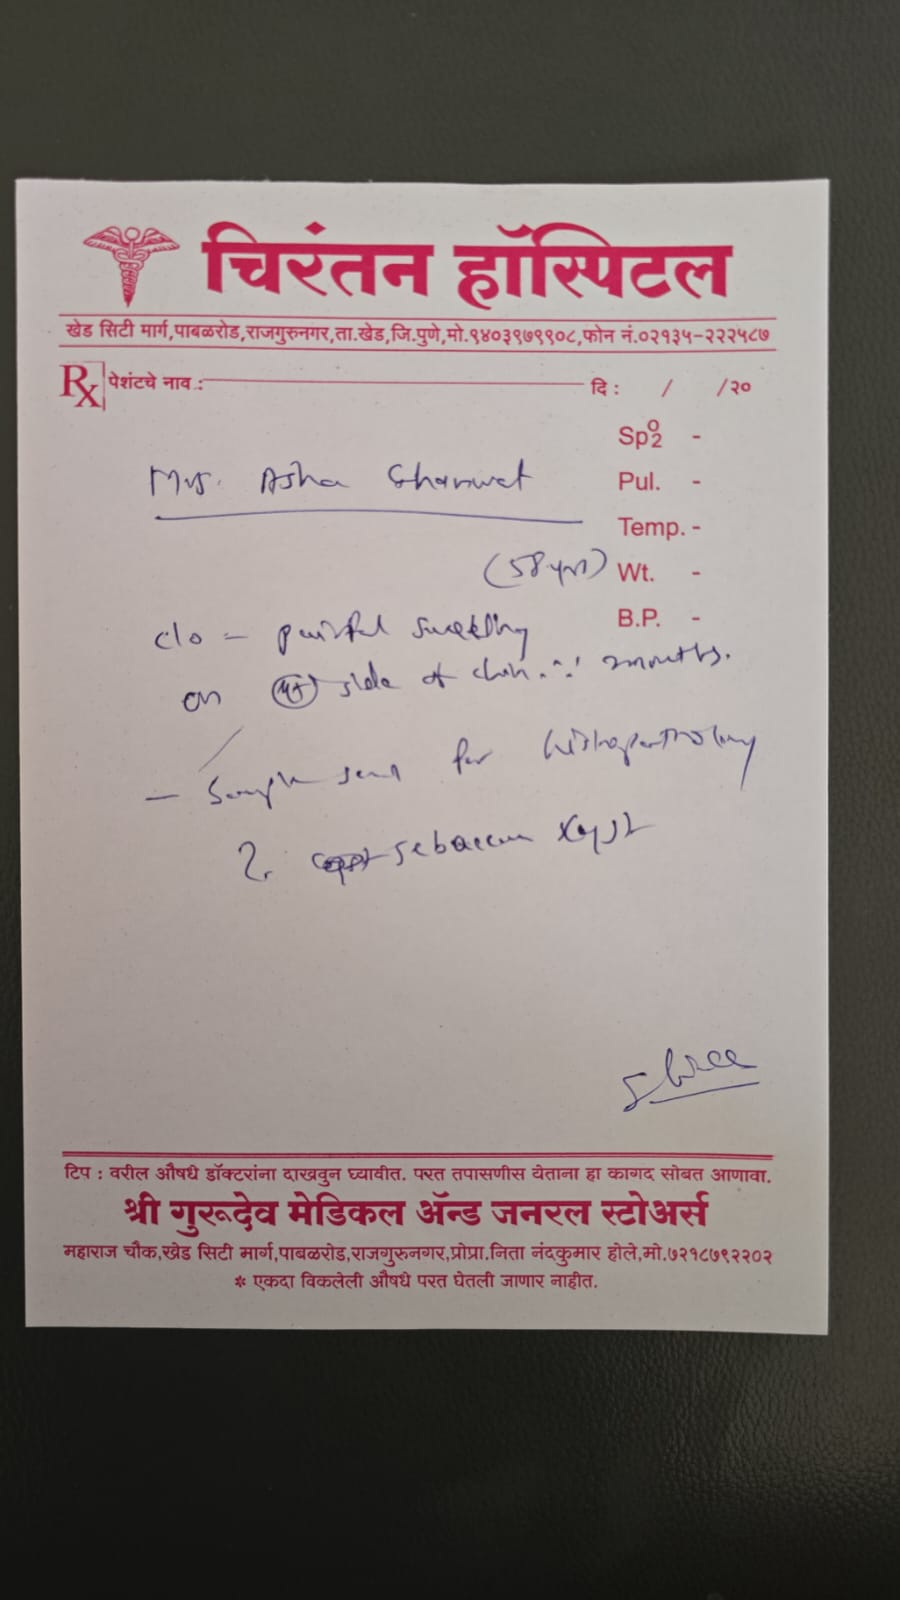 चिरंतन हॉस्पिटल
खेड सिटी मार्ग,पाबळरोड,राजगुरुनगर,ता.खेड,जि.पुणे,मो.९४०३९७९९०८,फोन नं.०२१३५-२२२५८७
Rx पेशंटचे नाव : दि : / /२०
SpO2 -
Mrs. Asha Ghanwat Pul. -
Temp. -
(58 yrs) Wt. -
B.P. -
c/o - painful swelling
on side of chin months.
- Sample sent for histopathology
? sebaceous cyst
टिप : वरील औषधे डॉक्टरांना दाखवुन घ्यावीत. परत तपासणीस येताना हा कागद सोबत आणावा.
श्री गुरूदेव मेडिकल ॲन्ड जनरल स्टोअर्स
महाराज चौक,खेड सिटी मार्ग,पाबळरोड,राजगुरुनगर,प्रोप्रा.निता नंदकुमार होले,मो.७२१८७९२२०२
* एकदा विकलेली औषधे परत घेतली जाणार नाहीत.